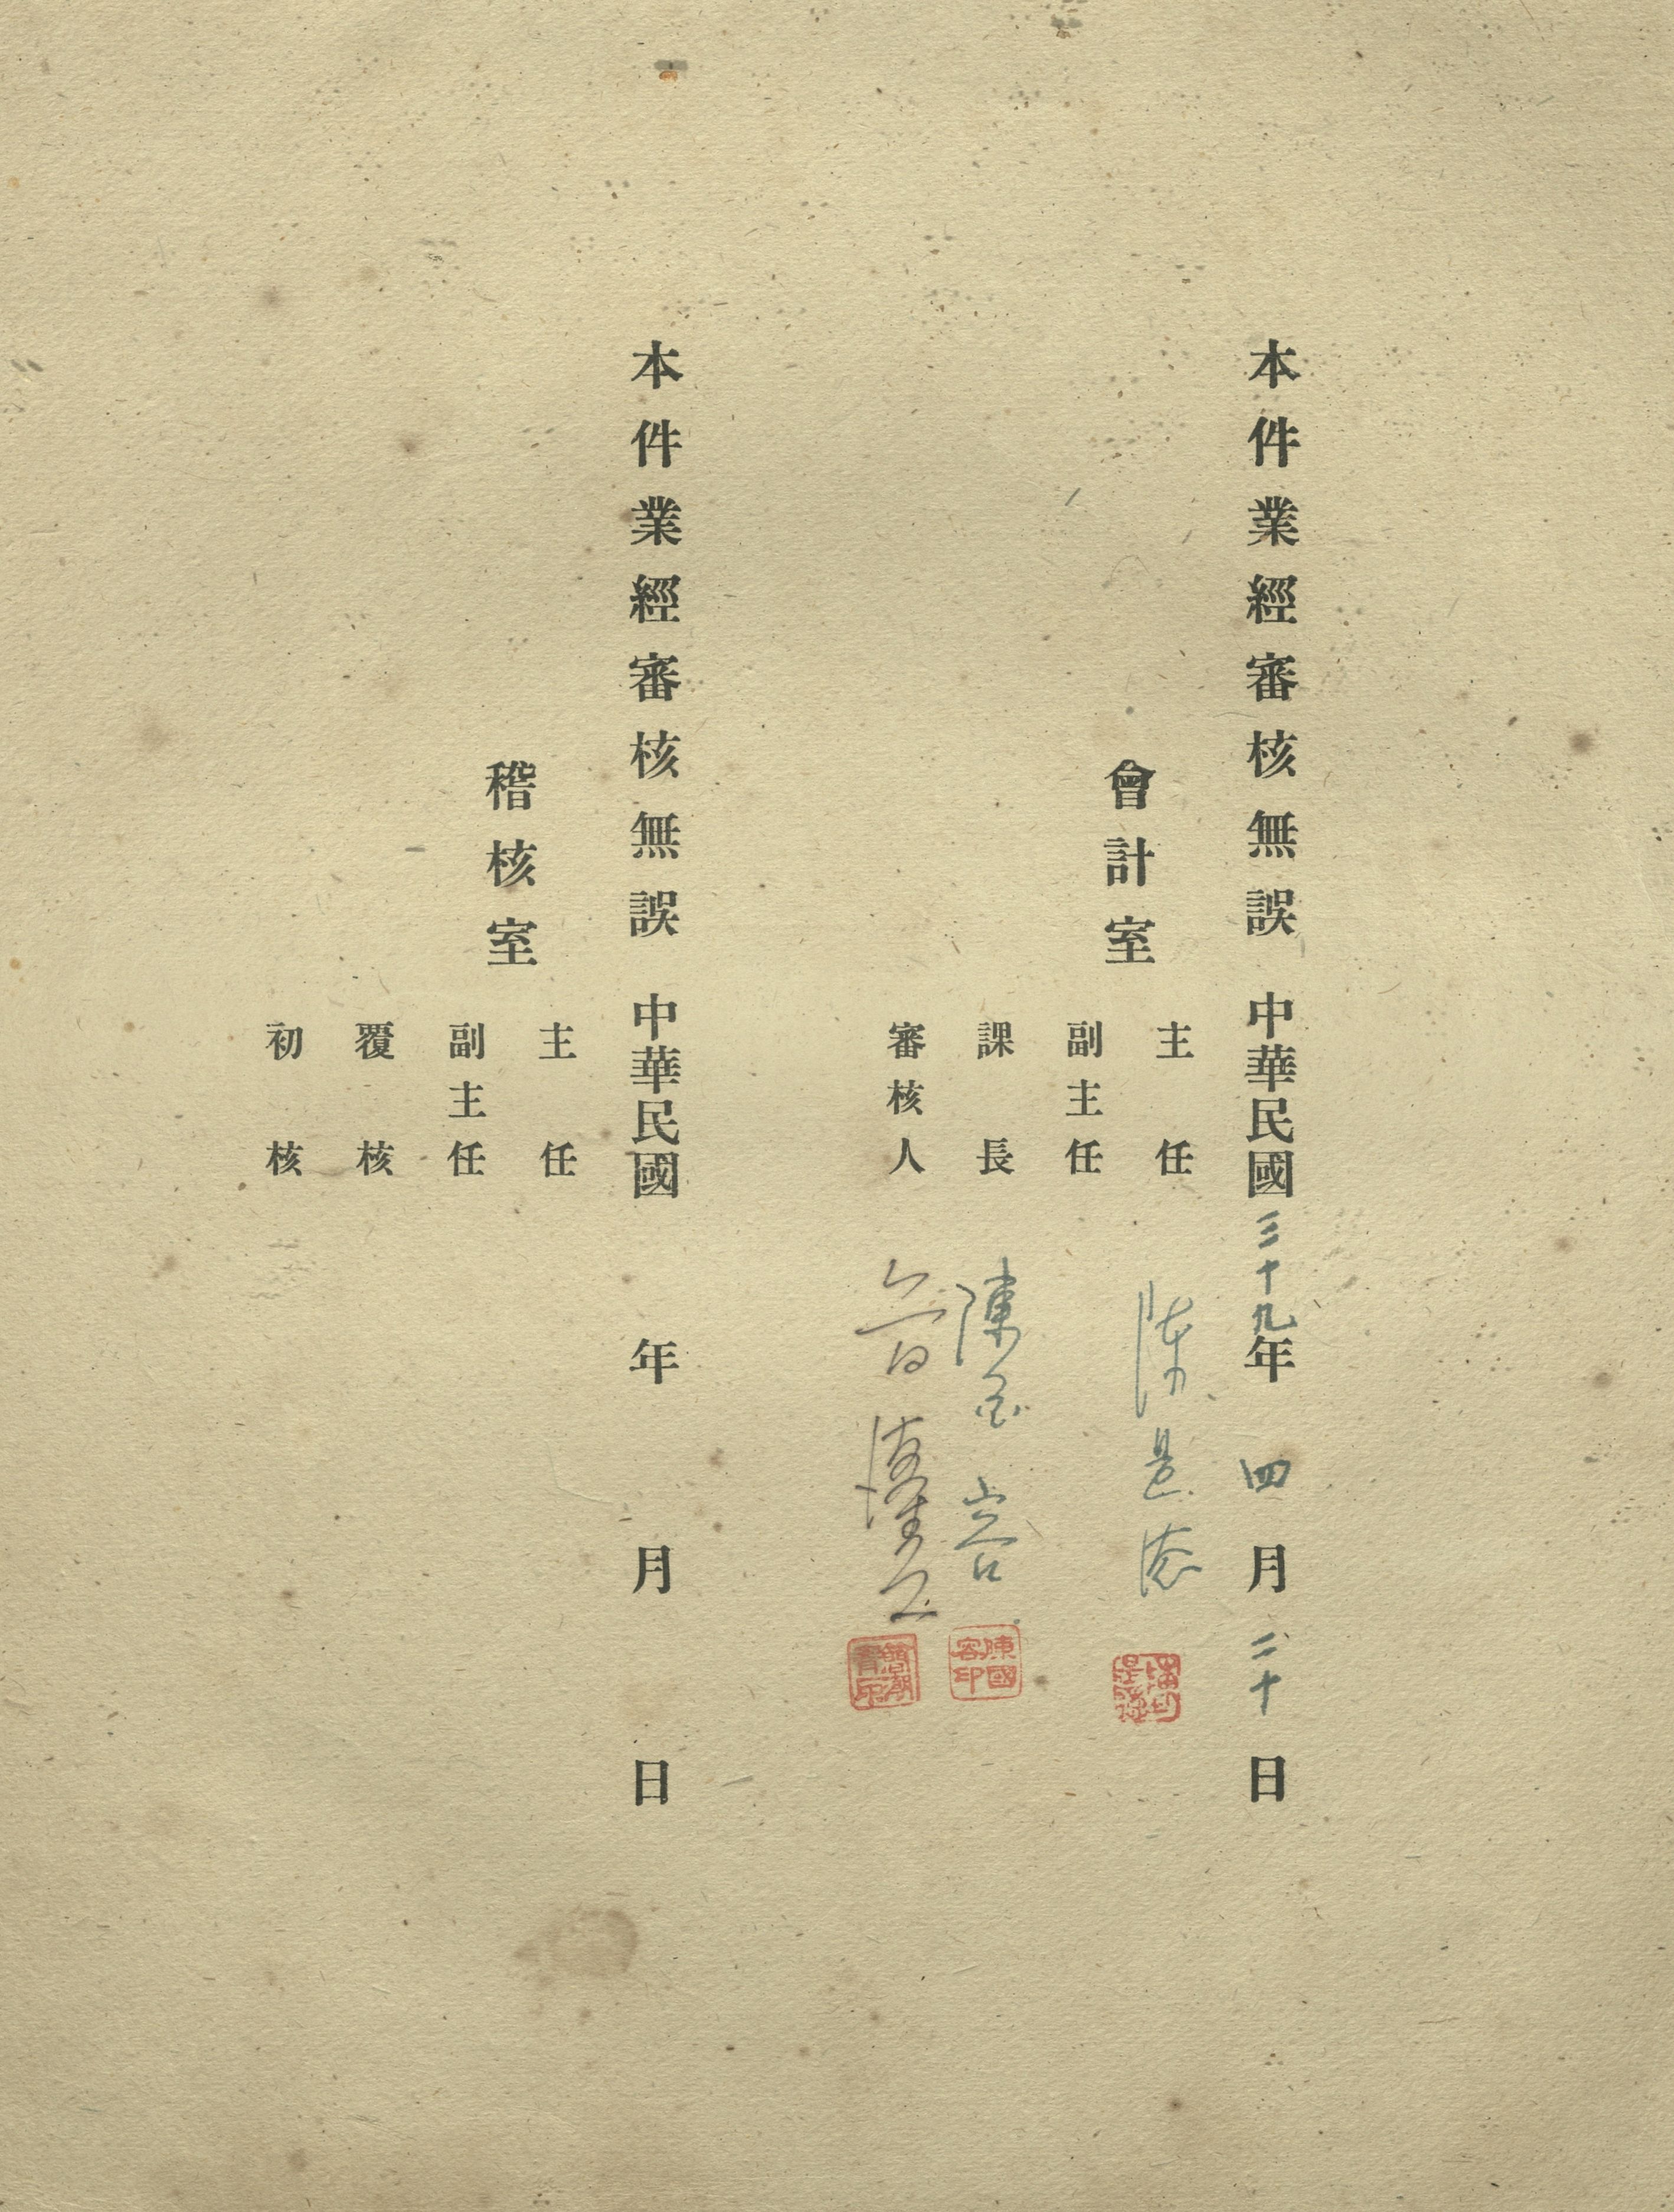 本件業經審核無誤 中華民國三十九年四月二十日
會計室
主任 陳是
副主任
課長 陳國容
陳國容印
審核人
本件業經審核無誤 中華民國 年 月 日
稽核室
主任
副主任
覆核
初核